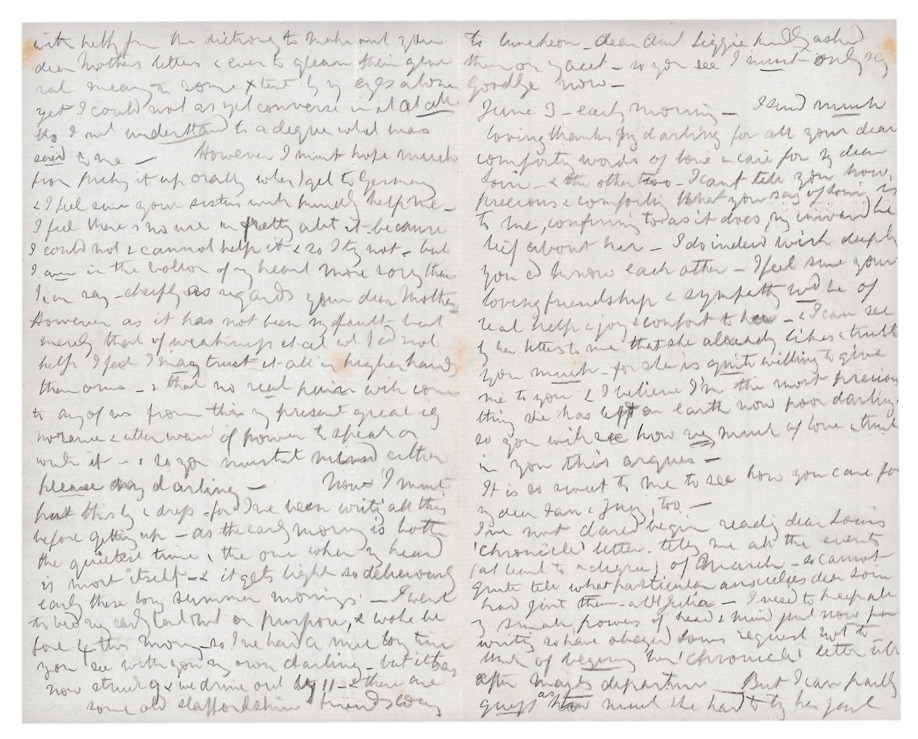 with help from the dictionary to make out your
dear Mother's letters & even to glean their gene
ral meaning to some extent by my eyes alone
yet I could not as yet converse in it at all
tho I not understand to a degree what was
said to me — However I must hope much
from picking it up orally when I get to Germany
& I feel sure your sisters will kindly help me —
I feel there's no use in fretting abt it because
I could not & cannot help it & so I try not — but
I am in the bottom of my heart more sorry than
I can say — chiefly as regards your dear Mother
However as it has not been my fault — but
merely that of weakness at all I cd not
help I feel I may trust it all in higher hands
than ours — & that no real pain will come
to any of us from this my present great ig
norance & utter want of power to speak or
write it — & so you mustn't mind either
please my darling — Now I must
put this by & dress — for I've been writing all this
before getting up — as the early morning is both
the quietest time & the one when my head
is most itself — & it gets light so deliciously
early these long summer mornings — I went
to bed very early last night on purpose, & woke be
fore 4 this morng — so I've had a nice long time
you see with you my own darling — but it has
now struck 9 & we drive out by 11 — & there are
some old Staffordshire friends coming
to luncheon — dear Aunt Lizzie kindly asked
them on my acct — so you see I must only say
goodbye now —
June 3 — early morning — I send much
loving thanks my darling for all your dear
comforting words of love & care for my dear
Loui — & the others too — I can't tell you how
precious & comforting what you say of Loui is
to me, confirming too as it does, my inward be
lief about her — I do indeed wish deeply
you cd know each other — I feel sure your
loving friendship & sympathy wd be of
real help & joy & comfort to her — & I can see
by her letters to me that she already likes & trusts
you much — for she is quite willing to give
me to you & I believe I'm the most precious
thing she has left on earth now poor darling
so you will see how very much of love & trust
in you this argues —
It is so sweet to me to see how you care for
my dear Ian & Juey, too —
I've not dared begin reading dear Loui's
'chronicle' letter telling me all the events
(at least to a degree) of March — so cannot
quite tell what particular anxieties dear Loui
had just then — I need to keep all
my small powers of head & mind just now for
writing so have obeyed Loui's request not to
think of beginning her 'chronicle' letter till
after departure — But I can partly
guess at how much she had to try her just